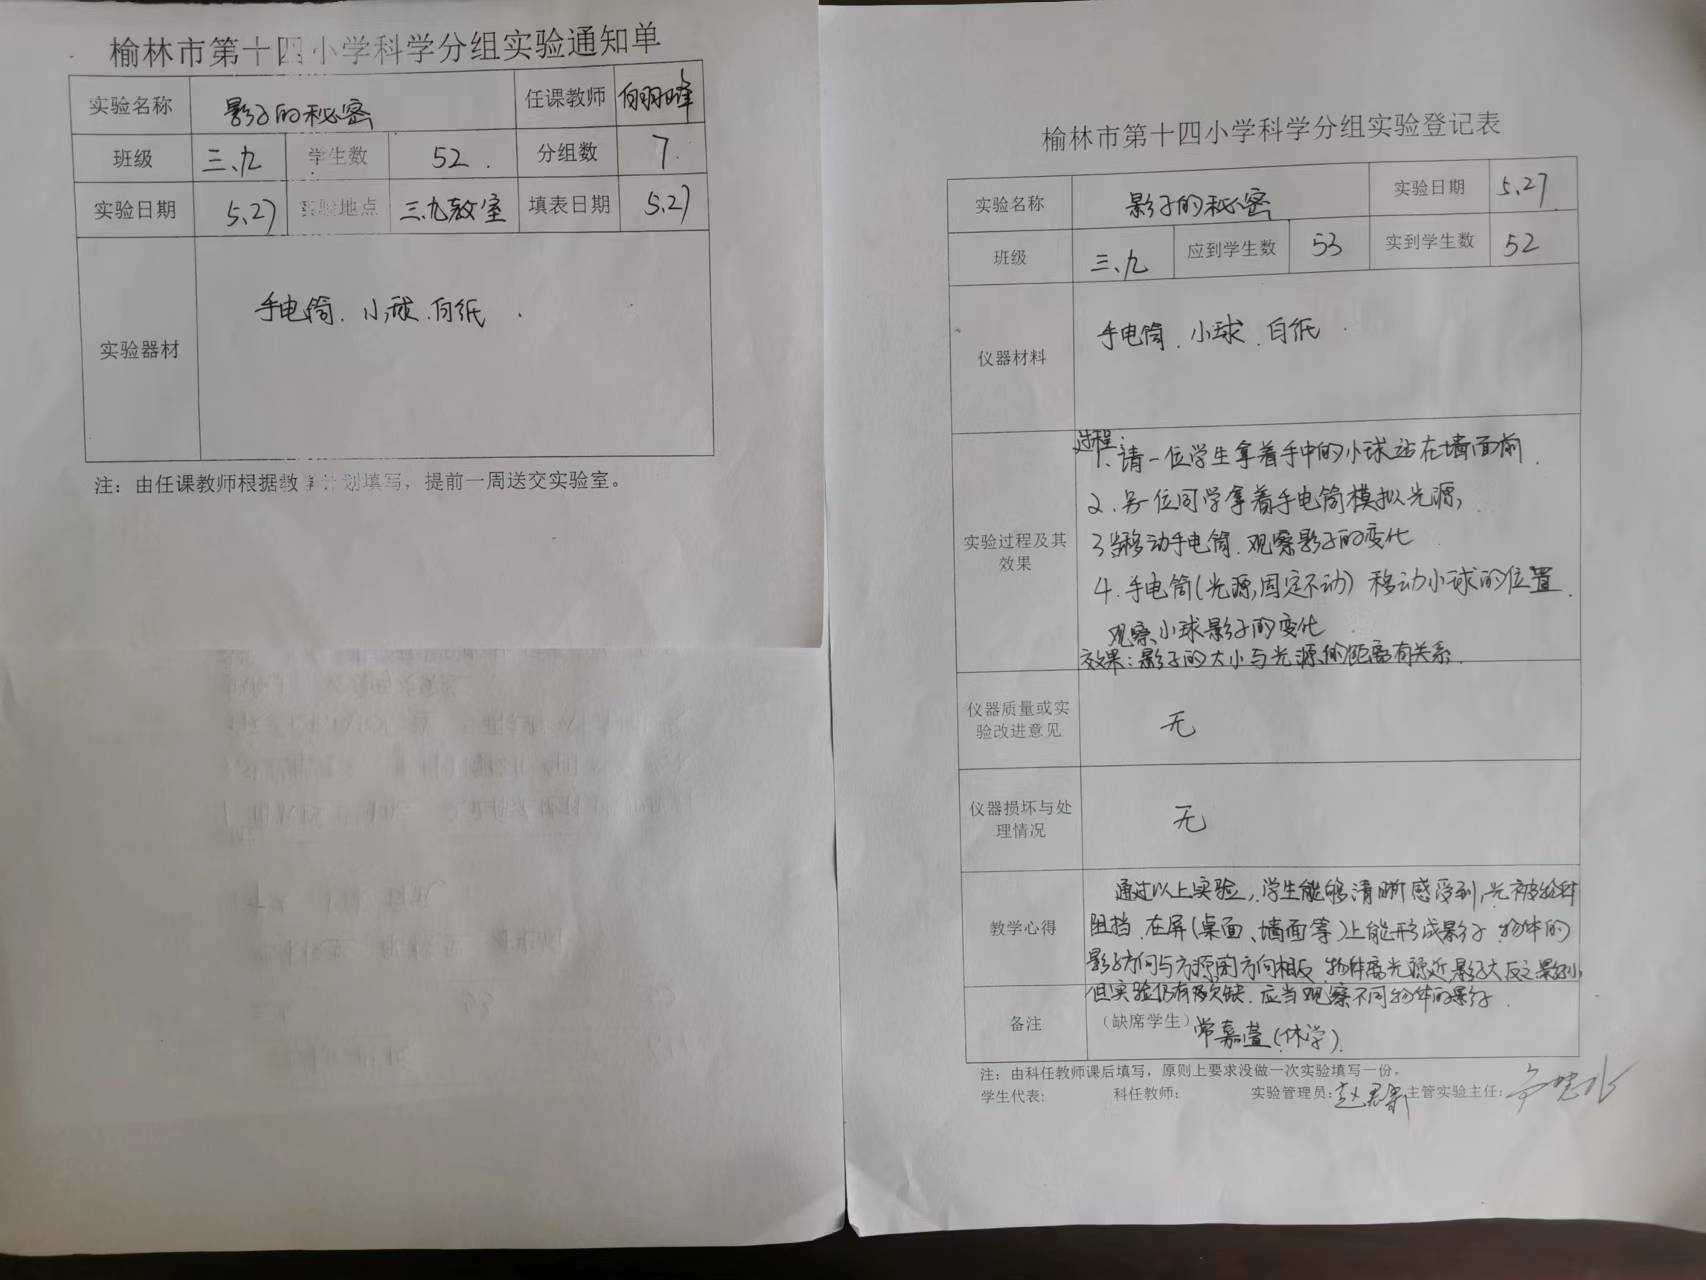 榆林市第十四小学科学分组实验通知单
实验名称 影子的秘密 任课教师
班级 三、九 学生数 52. 分组数 7.
实验日期 5.27 实验地点 三.九教室 填表日期 5.27
实验器材 手电筒. 小球.白纸.
注：由任课教师根据教学计划填写，提前一周送交实验室。
榆林市第十四小学科学分组实验登记表
实验名称 影子的秘密 实验日期 5.27
班级 三.九 应到学生数 53 实到学生数 52
仪器材料 手电筒.小球.白纸.
实验过程及其效果
过程：
1、请一位学生拿着手中的小球站在墙面前.
2、另位同学拿着手电筒模拟光源，
3 移动手电筒.观察影子的变化
4.手电筒(光源,固定不动) 移动小球的位置.
观察小球影子的变化
效果：影子的大小与光源的距离有关系.
仪器质量或实验改进意见 无
仪器损坏与处理情况 无
教学心得
通过以上实验,学生能够清晰感受到,光被
阻挡.在屏(桌面、墙面等)上能形成影子.物体的
影子方向与方向相反.物体离光源近影子大反之影子小,
但实验仍有欠缺.应当观察不同物体的影子.
备注 （缺席学生）常嘉萱(休学).
注：由科任教师课后填写，原则上要求没做一次实验填写一份。
学生代表: 科任教师: 实验管理员: 主管实验主任: